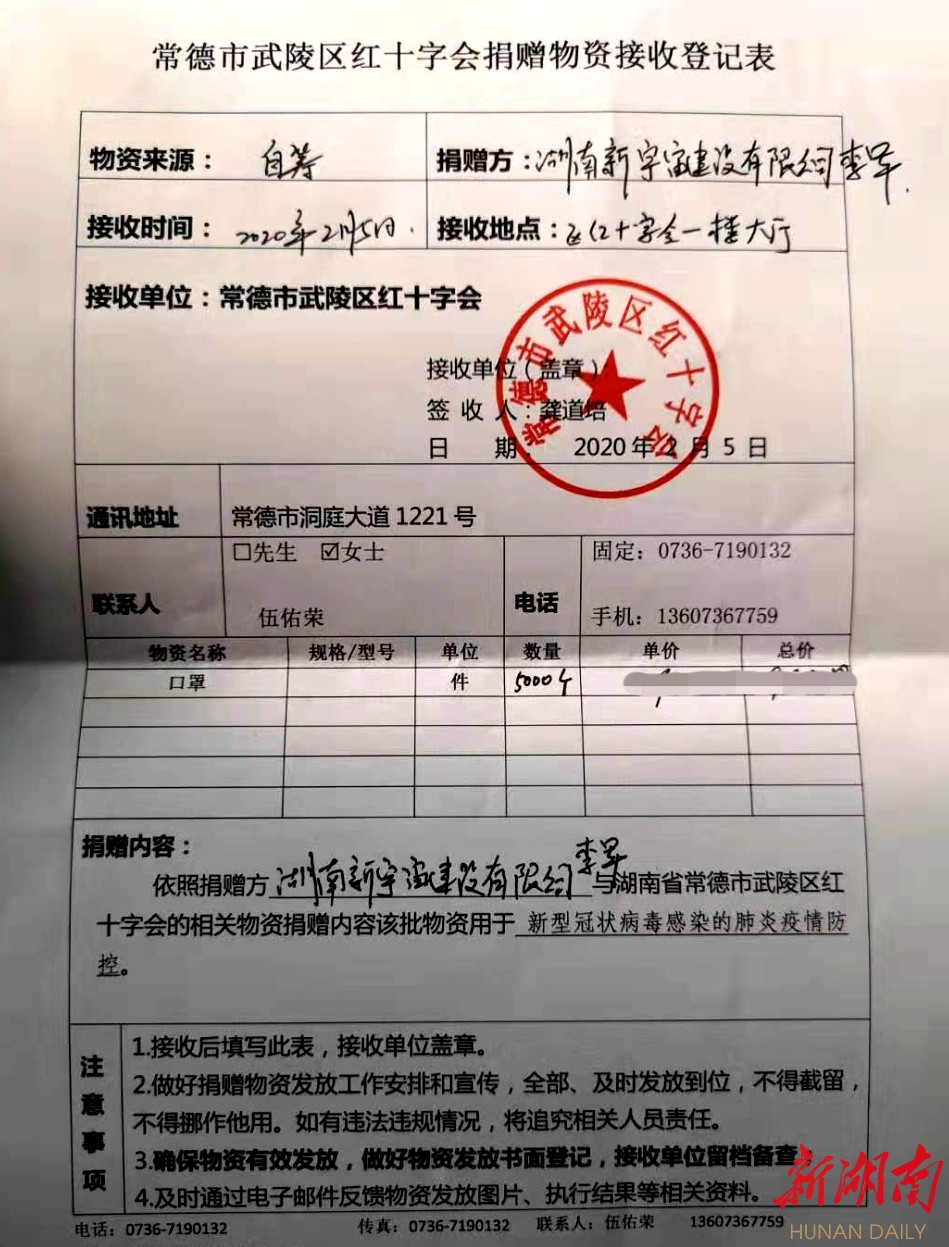 常德市武陵区红十字会捐赠物资接收登记表
物资来源： 自筹 捐赠方：湖南新宇宙建设有限公司 李军
接收时间： 2020年2月5日. 接收地点：区红十字会一楼大厅
接收单位：常德市武陵区红十字会
接收单位（盖章）：
签 收 人：龚道培
日 期： 2020年2月5日
常德市武陵区红十字会
通讯地址 常德市洞庭大道1221号
联系人 ☐先生 ☑女士 伍佑荣
电话 固定：0736-7190132
手机：13607367759
物资名称 规格/型号 单位 数量 单价 总价
口罩 件 5000个
捐赠内容：
依照捐赠方湖南新宇宙建设有限公司 李军与湖南省常德市武陵区红
十字会的相关物资捐赠内容该批物资用于 新型冠状病毒感染的肺炎疫情防
控。
注意事项
1.接收后填写此表，接收单位盖章。
2.做好捐赠物资发放工作安排和宣传，全部、及时发放到位，不得截留，
不得挪作他用。如有违法违规情况，将追究相关人员责任。
3.确保物资有效发放，做好物资发放书面登记，接收单位留档备查。
4.及时通过电子邮件反馈物资发放图片、执行结果等相关资料。
电话：0736-7190132 传真：0736-7190132 联系人：伍佑荣 13607367759
新湖南
HUNAN DAILY